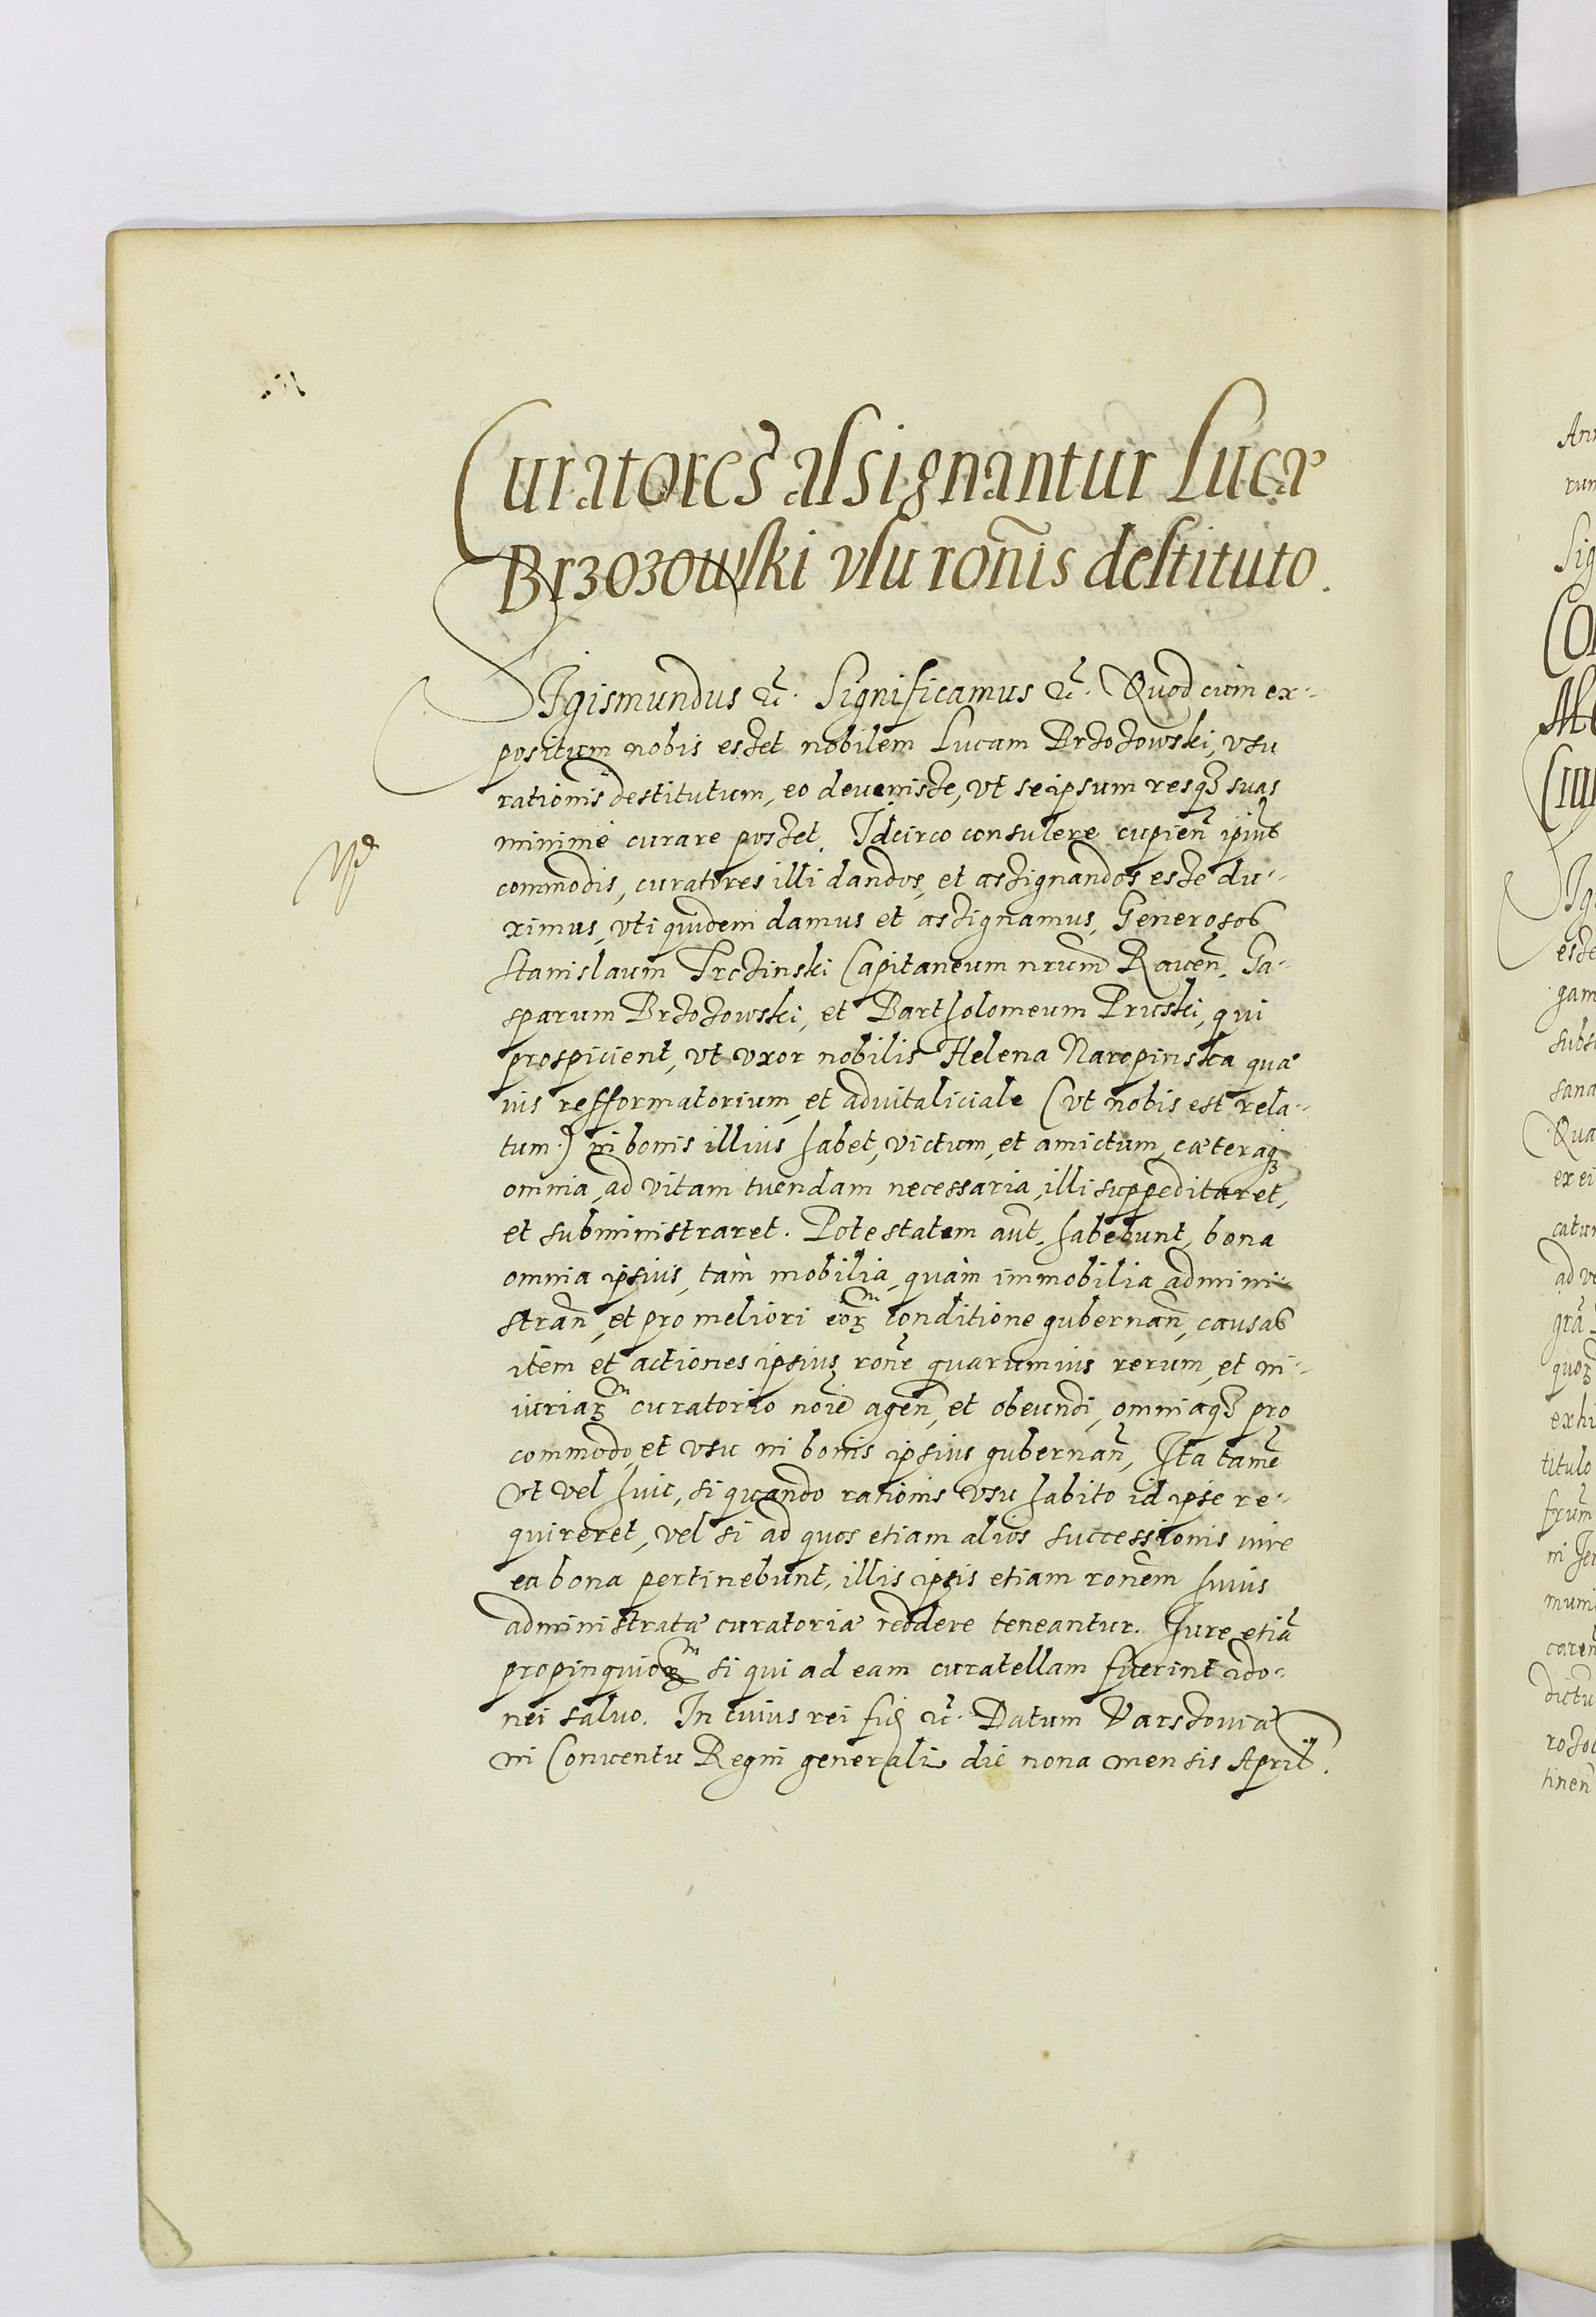 Curatores assignantur Lucæ
Brzozowski vsu ron̄is destituto.
Sigismundus &c̃. Significamus &c̃. Quod cum ex-
positum nobis esset nobilem Lucam Brzozowski, vsu
rationis destitutum, eo deuenisse, vt seipsum resq₃ suas
minimè curare posset. Idcirco consulere cupień ipius
commodis, curatores illi dandos, et assignandos esse du-
ximus, vti quidem damus et assignamus, Generosos
Stanislaum Trczinski Capitaneum nrum Raueń, Ga-
sparum Brzozowski, et Bartholomeum Pruski, qui
prospicient, vt vxor nobilis Helena Naropinska quæ
ius refformatorium, et aduitaliciale (vt nobis est rela-
tum) in bonis illius habet, victum, et amictum, cæteraq₃
omnia, ad vitam tuendam necessaria, illi suppeditaret,
et subministraret. Potestatem aut̃. habebunt, bona
omnia ipsius, tàm mobilia, quàm immobilia, admini-
strañ, et pro meliori eoꝝm conditione gubernañ, causas
item et actiones ipsius rone quarumuis rerum, et in-
iuriaꝝm curatorio noie ageñ, et obeundi, omniaq₃ pro
commodo, et vsu in bonis ipsius gubernañ, Ita tamẽ
vt vel huic, si quando rationis vsu habito id ipse re-
quireret, vel si ad quos etiam alios successionis iure
ea bona pertinebunt, illis ipsis etiam ronem huius
administratæ curatoriæ reddere teneantur. Iure etiã
propinquioꝝm si qui ad eam curatellam fuerint ido-
nei saluo. In cuius rei fid &c̃. Datum Varszouiæ
in Conuentu Regni generali die nona mensis April.